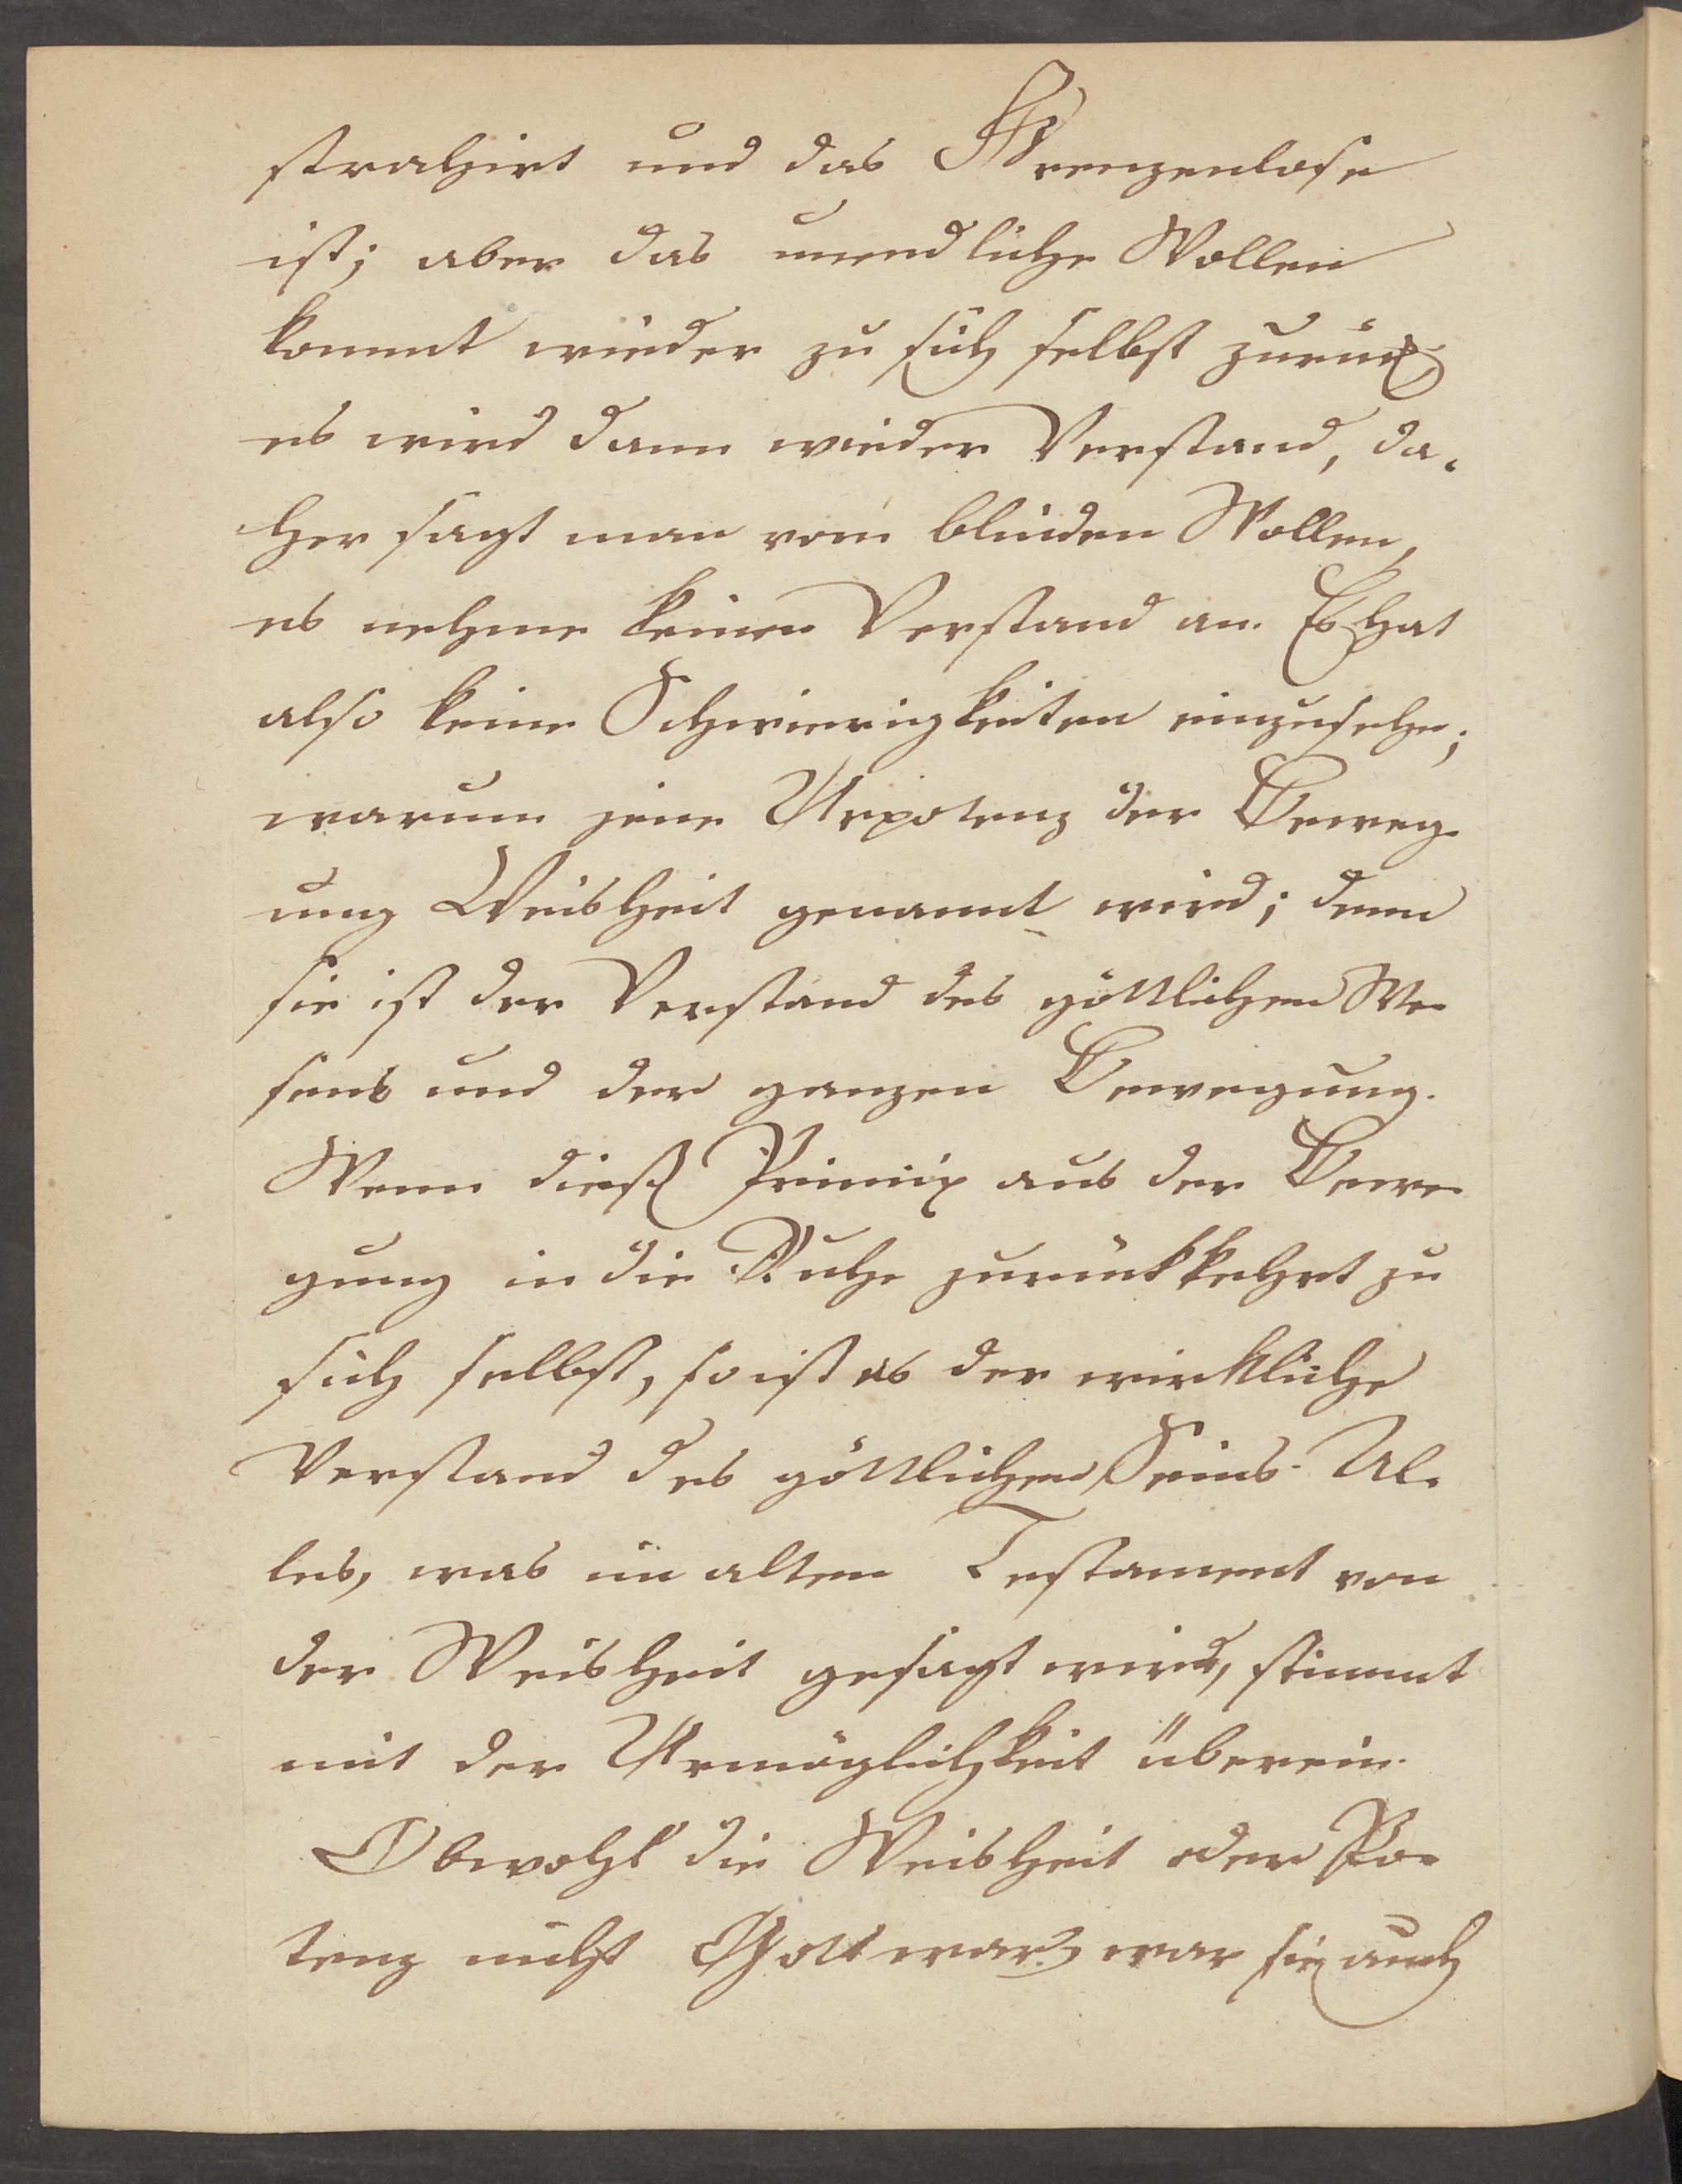 strahirt und das Grenzenlose
ist; aber das unendliche Wollen
kommt wieder zu sich selbst zurück,
es wird dann wieder Verstand, da-
her sagt man vom blinden Wollen,
es nehme keinen Verstand an. Es hat
also keine Schwierigkeiten einzusehen,
warum jene Urpotenz der Beweg-
ung Weisheit genannt wird; denn
sie ist der Verstand des göttlichen We-
sens und der ganzen Bewegung.
Wenn dieß Princip aus der Bewe-
gung in die Ruhe zurückkehrt zu
sich selbst, so ist es der wirkliche
Verstand des göttlichen Seins. Al-
les, was im alten Testament von
der Weisheit gesagt wird, stimmt
mit der Urmöglichkeit überein.
Obwohl die Weisheit oder Po-
tenz nicht Gott war, war sie auch